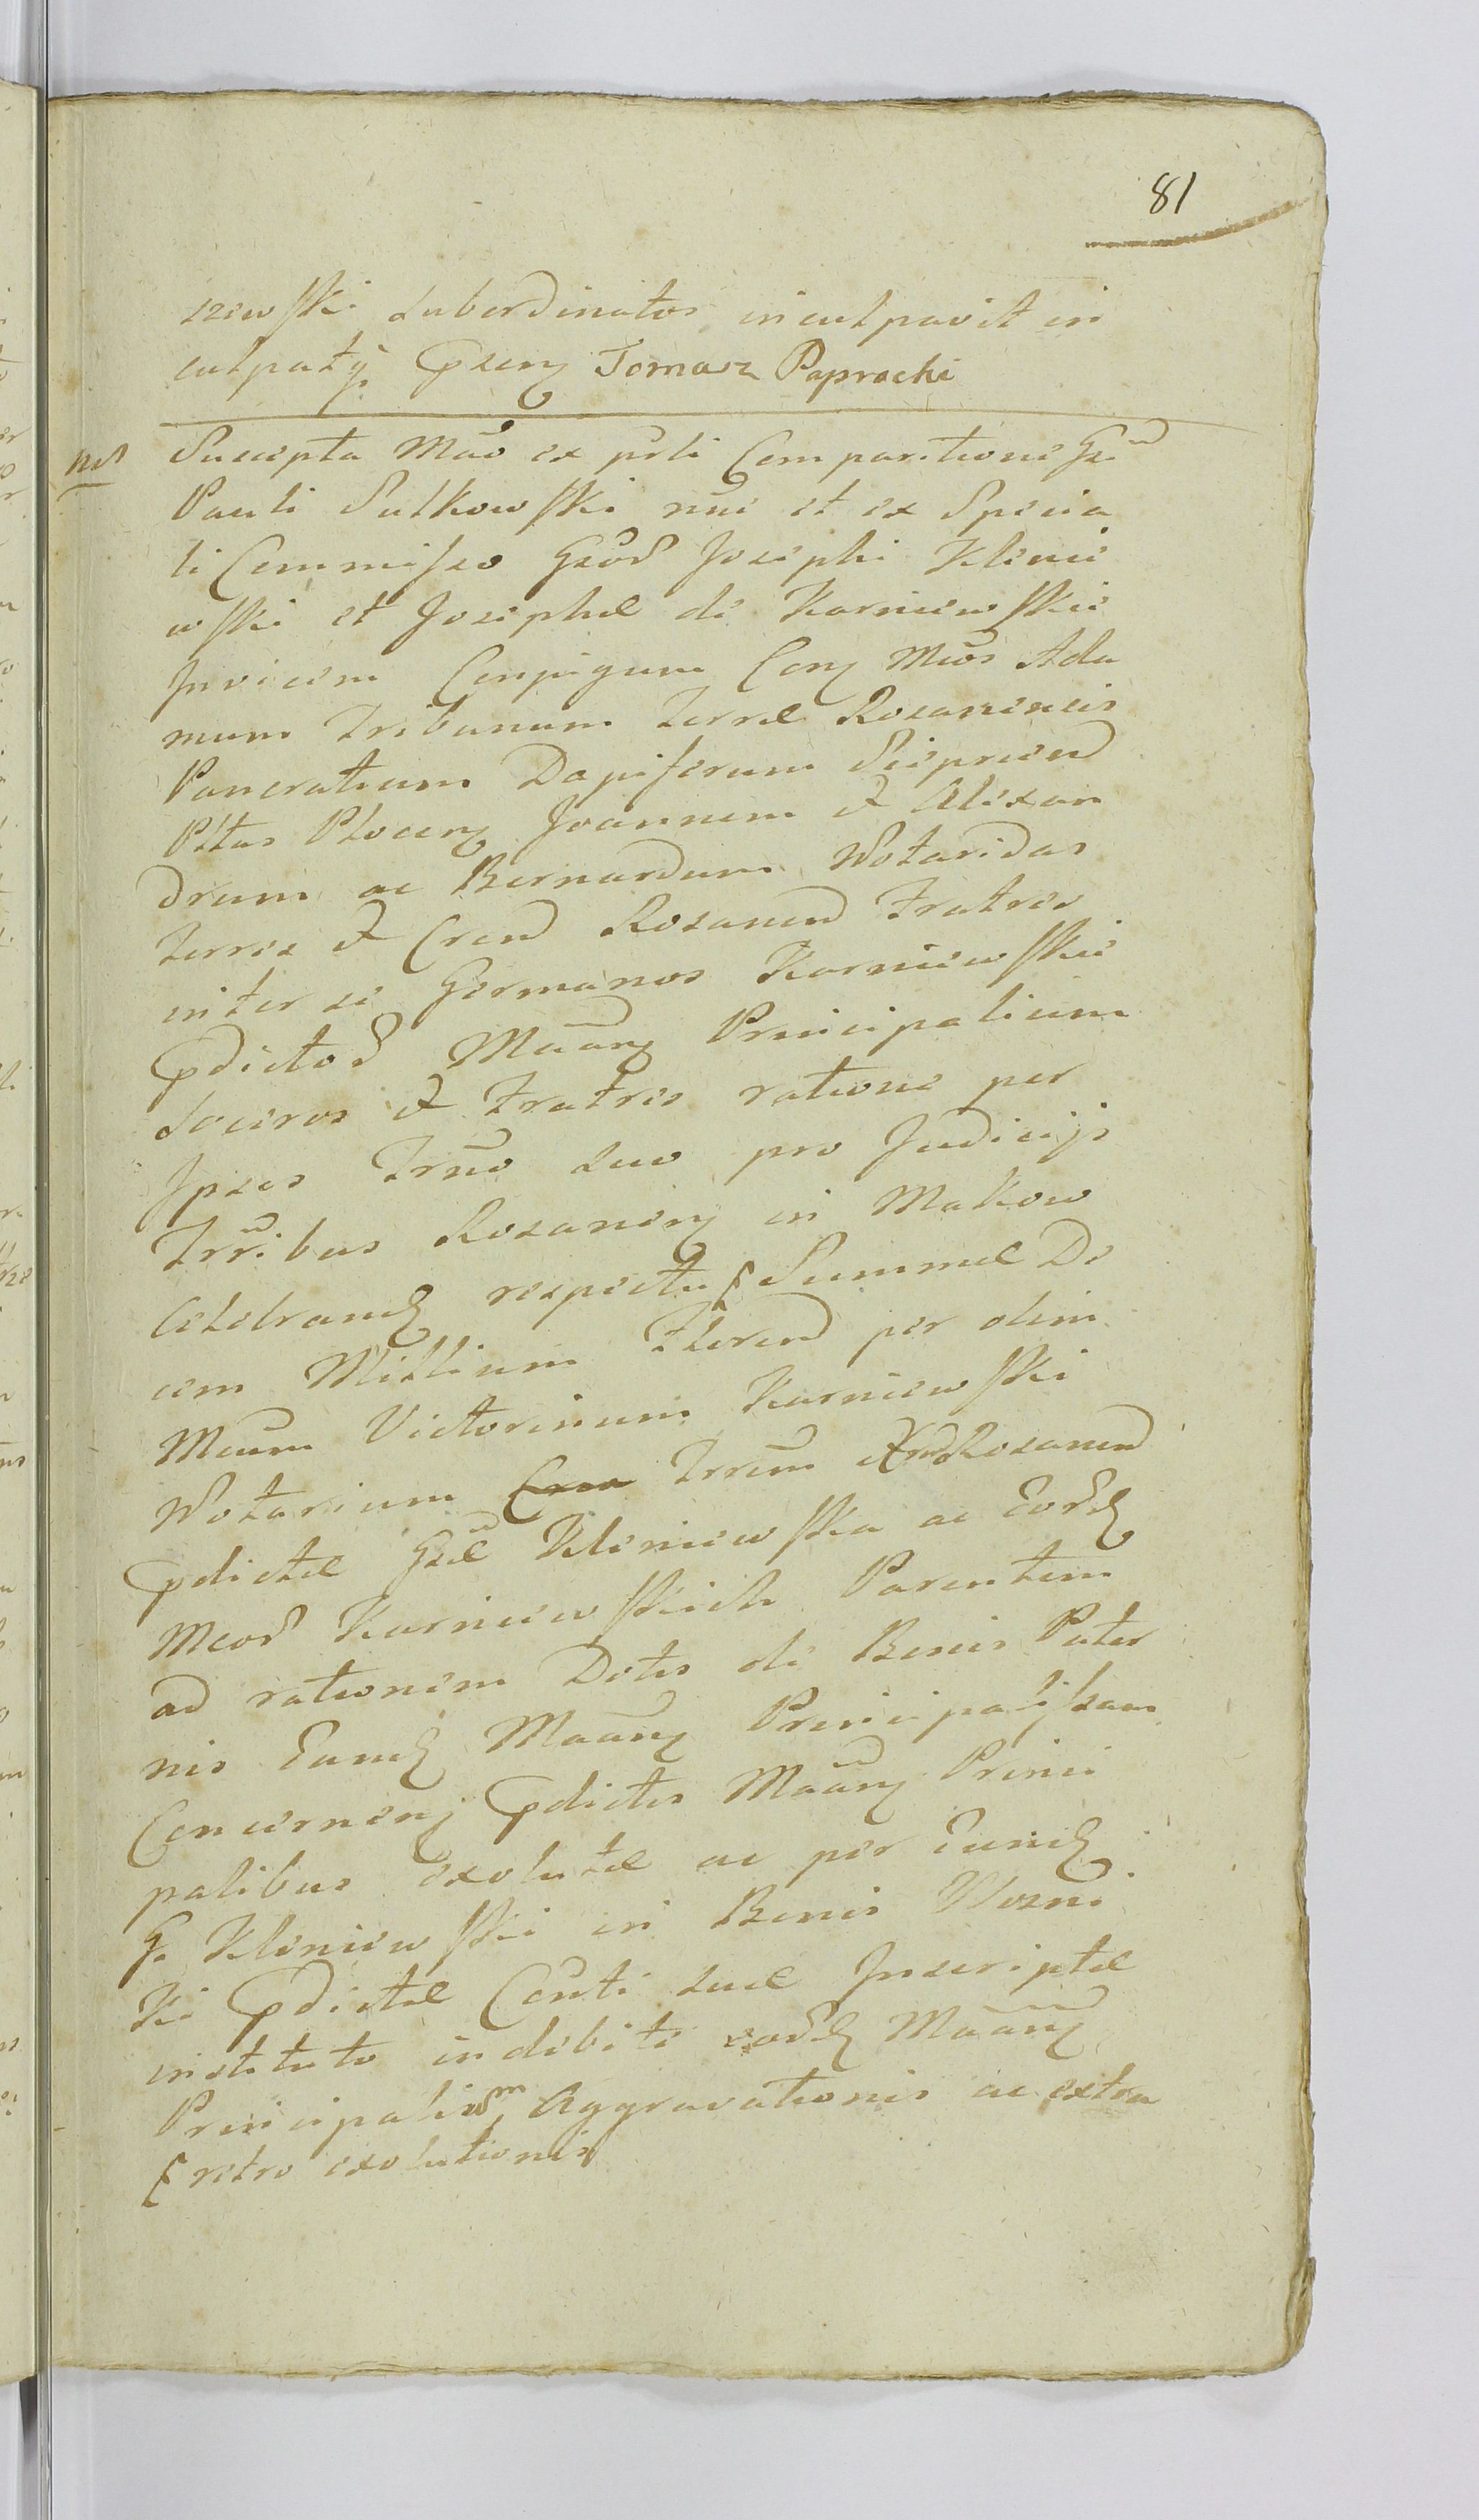 81
szewski subordinatos inculpavit in
culpatq Psens Tomasz Paprocki
Suscepta Mãõ ex prsti Comparitione Gsi
Pauli Sutkowski nõe et ex Specia
li Commisso Gsor Josephi Klenie
wski et Josephæ de Karniewskie
Invicem Conjugum Cons Mcos Ada
mum Tribunum Terræ Rosanensis
Pancratium Dapiferum Sieprcen
Pttus Plocens Joannem et Alexan
drum ac Bernardum Notaridas
Terres et Cren Rosanen Fratres
inter se Germanos Karniewskie
Pdictor Mãang Principalium
Soceros et Fratres ratione per
Ipsos Trño suo pro Judicijs
Trribus Rosanens in Makow
Celebrand respectu Summæ De
cem Millium Floren per olim
Mcum Victorinum Karniewski
Notarium Cren Trrem Rosanen
Pdictæ Gsæ Kleniewska ac Eord
Mcor Karniewskich Parentem
ad rationem Dotis de Bonis Pater
nis Eand Mãang Principalissam
Concernens Pdictis Mãang Princi
palibus exolutæ ac per Eund
G. Kleniewski in Bonis Wozni
ki Pdictæ Conti suæ Inscriptæ
instituto indebite eord Mãang
Principalium Aggravationis ac extra
retro exolutionis